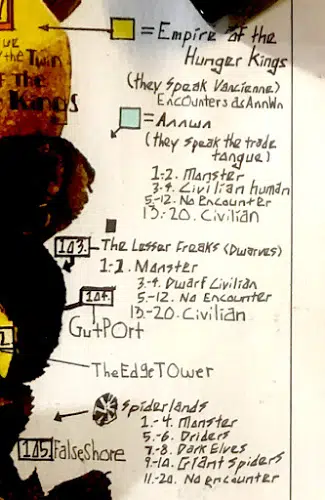 = Empire of the
Hunger Kings
(they speak Vancienne)
Encounters as Annwn
= Annwn
(they speak the trade
tongue)
1-2. Monster
3-4. Civilian human
5.-12. No Encounter
13.-20. Civilian
the Twin
of The
Kings
103.
The Lesser Freaks (Dwarves)
1-2. Monster
3-4. Dwarf Civilian
5.-12. No Encounter
13.-20. Civilian
104.
GutPOrt
TheEdgeTOwer
Spiderlands
1.-4. Monster
5.-6. Driders
7.-8. Dark Elves
9.-10. Giant Spiders
11.-20. No encounter
105.
FalseShore